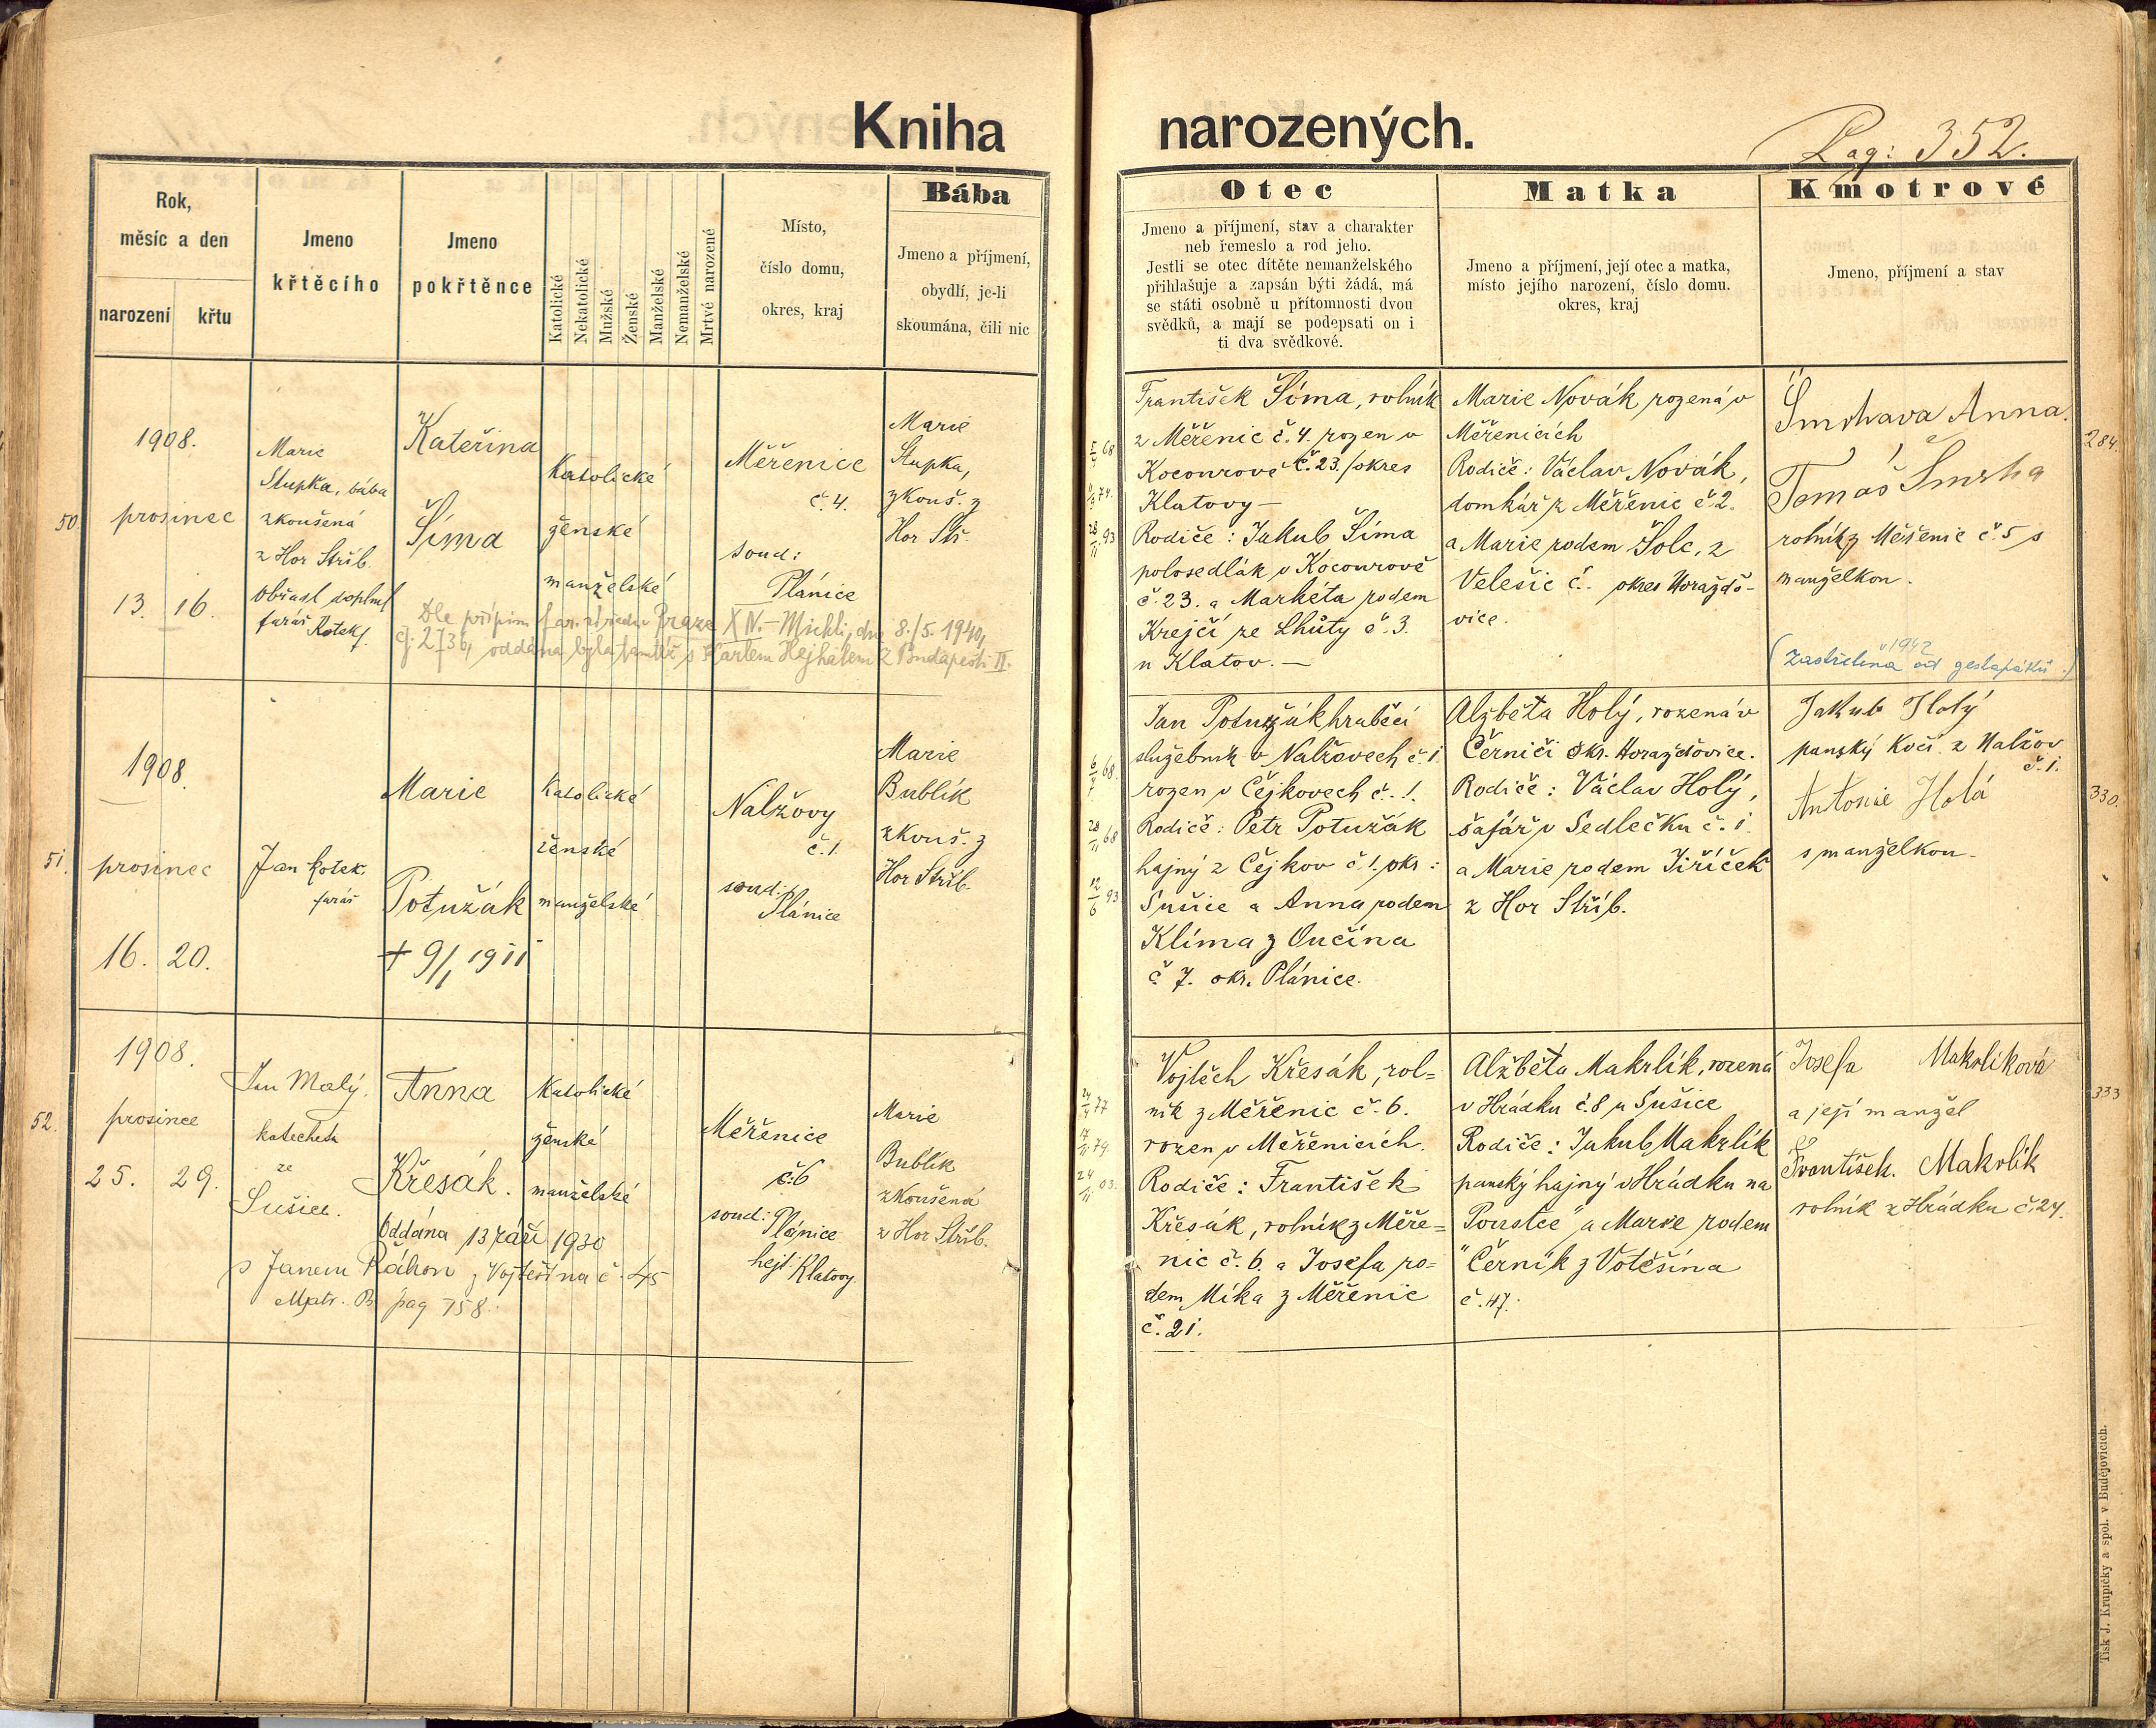 Kniha narozených.
Pag: 352.
Rok,
měsíc a den
narození
křtu
Jmeno
křtěcího
Jmeno
pokřtěnce
Katolické
Nekatolické
Mužské
Ženské
Manželské
Nemanželské
Mrtvé narozené
Místo,
číslo domu,
okres, kraj
Bába
Jmeno a příjmení,
obydlí, je-li
skoumána, čili nic
Otec
Jmeno a příjmení, stav a charakter
neb řemeslo a rod jeho.
Jestli se otec dítěte nemanželského
přihlašuje a zapsán býti žádá, má
se státi osobně u přítomnosti dvou
svědků, a mají se podepsati on i
ti dva svědkové.
Matka
Jmeno a příjmení, její otec a matka,
místo jejího narození, číslo domu.
okres, kraj
Kmotrové
Jmeno, příjmení a stav
50
1908.
prosinec
13. 16.
Marie
Stupka, bába
zkoušená
z Hor Stříb.
Obřad doplnil
farář Kotek
Kateřina
Šíma
Katolické
ženské
manželské
Měřenice
č. 4.
soud:
Plánice
Marie
Stupka,
zkouš. z
Hor Stř.
Dle přípisu far. úřadu Praze XIV.-Michli, dne 8./5. 1940,
čj. 2736, oddána byla tamtéž s Karlem Hejhalem z Budapešti II.
František Šíma, rolník
z Měřenic č. 4. rozen v
Kocourově č. 23. okres
Klatovy —
Rodiče: Jakub Šíma
polosedlák v Kocourově
č. 23. a Markéta rodem
Krejčí ze Lhůty č. 3.
u Klatov. —
Marie Novák rozená v
Měřenicích
Rodiče: Václav Novák,
domkář z Měřenic č. 2.
a Marie rodem Šolc, z
Velešic č. okres Horažďo-
vice.
Šmrhava Anna.
Tomáš Šmrha
rolník z Měřenic č. 5 s
manželkou.
v 1942
(zastřelena od gestapáků.)
284.
51.
1908.
prosinec
16. 20.
Jan Kotek.
farář
Marie
Potužák
+ 9/1 1911
Katolické
ženské
manželské
Nalžovy
č. 1.
soud:
Plánice
Marie
Bublík
zkouš. z
Hor Stříb.
Jan Potužák hraběcí
služebník v Nalžovech č. 1.
rozen v Čejkovech č. 1.
Rodiče: Petr Potužák
hajný z Čejkov č. 1. okr:
Sušice a Anna rodem
Klíma z Ounčína
č 7. okr. Plánice.
Alžběta Holý, rozená v
Černiči okr. Horažďovice.
Rodiče: Václav Holý,
šafář v Sedlečku č. 1.
a Marie rodem Jiříček
z Hor Stříb.
Jakub Holý
panský kočí z Nalžov
č. 1.
Antonie Holá
s manželkou.
330.
52.
1908.
prosince
25. 29.
Jan Malý.
katecheta
ze
Sušice.
Anna
Křesák.
Katolické
ženské
manželské
Měřenice
č. 6
soud: Plánice
hejt: Klatovy
Marie
Bublík
zkoušená
z Hor Stříb.
Oddána 13 září 1930
s Janem Ráhou z Vojtěšína č. 45
Matr. B pag 758.
Vojtěch Křesák, rol=
ník z Měřenic č. 6.
rozen v Měřenicích.
Rodiče: František
Křesák, rolník z Měře=
nic č. 6. a Josefa ro=
dem Míka z Měřenic
č. 21.
Alžběta Makrlík, rozená
v Hrádku č. 8 u Sušice
Rodiče: Jakub Makrlík
panský hajný v Hrádku na
"Poustce" a Marie rodem
Černík z Votěšína
č. 47.
Josefa Makrlíková
a její manžel
František Makrlík
rolník z Hrádku č. 24.
333
Tisk J. Krupičky a spol. v Budějovicích.